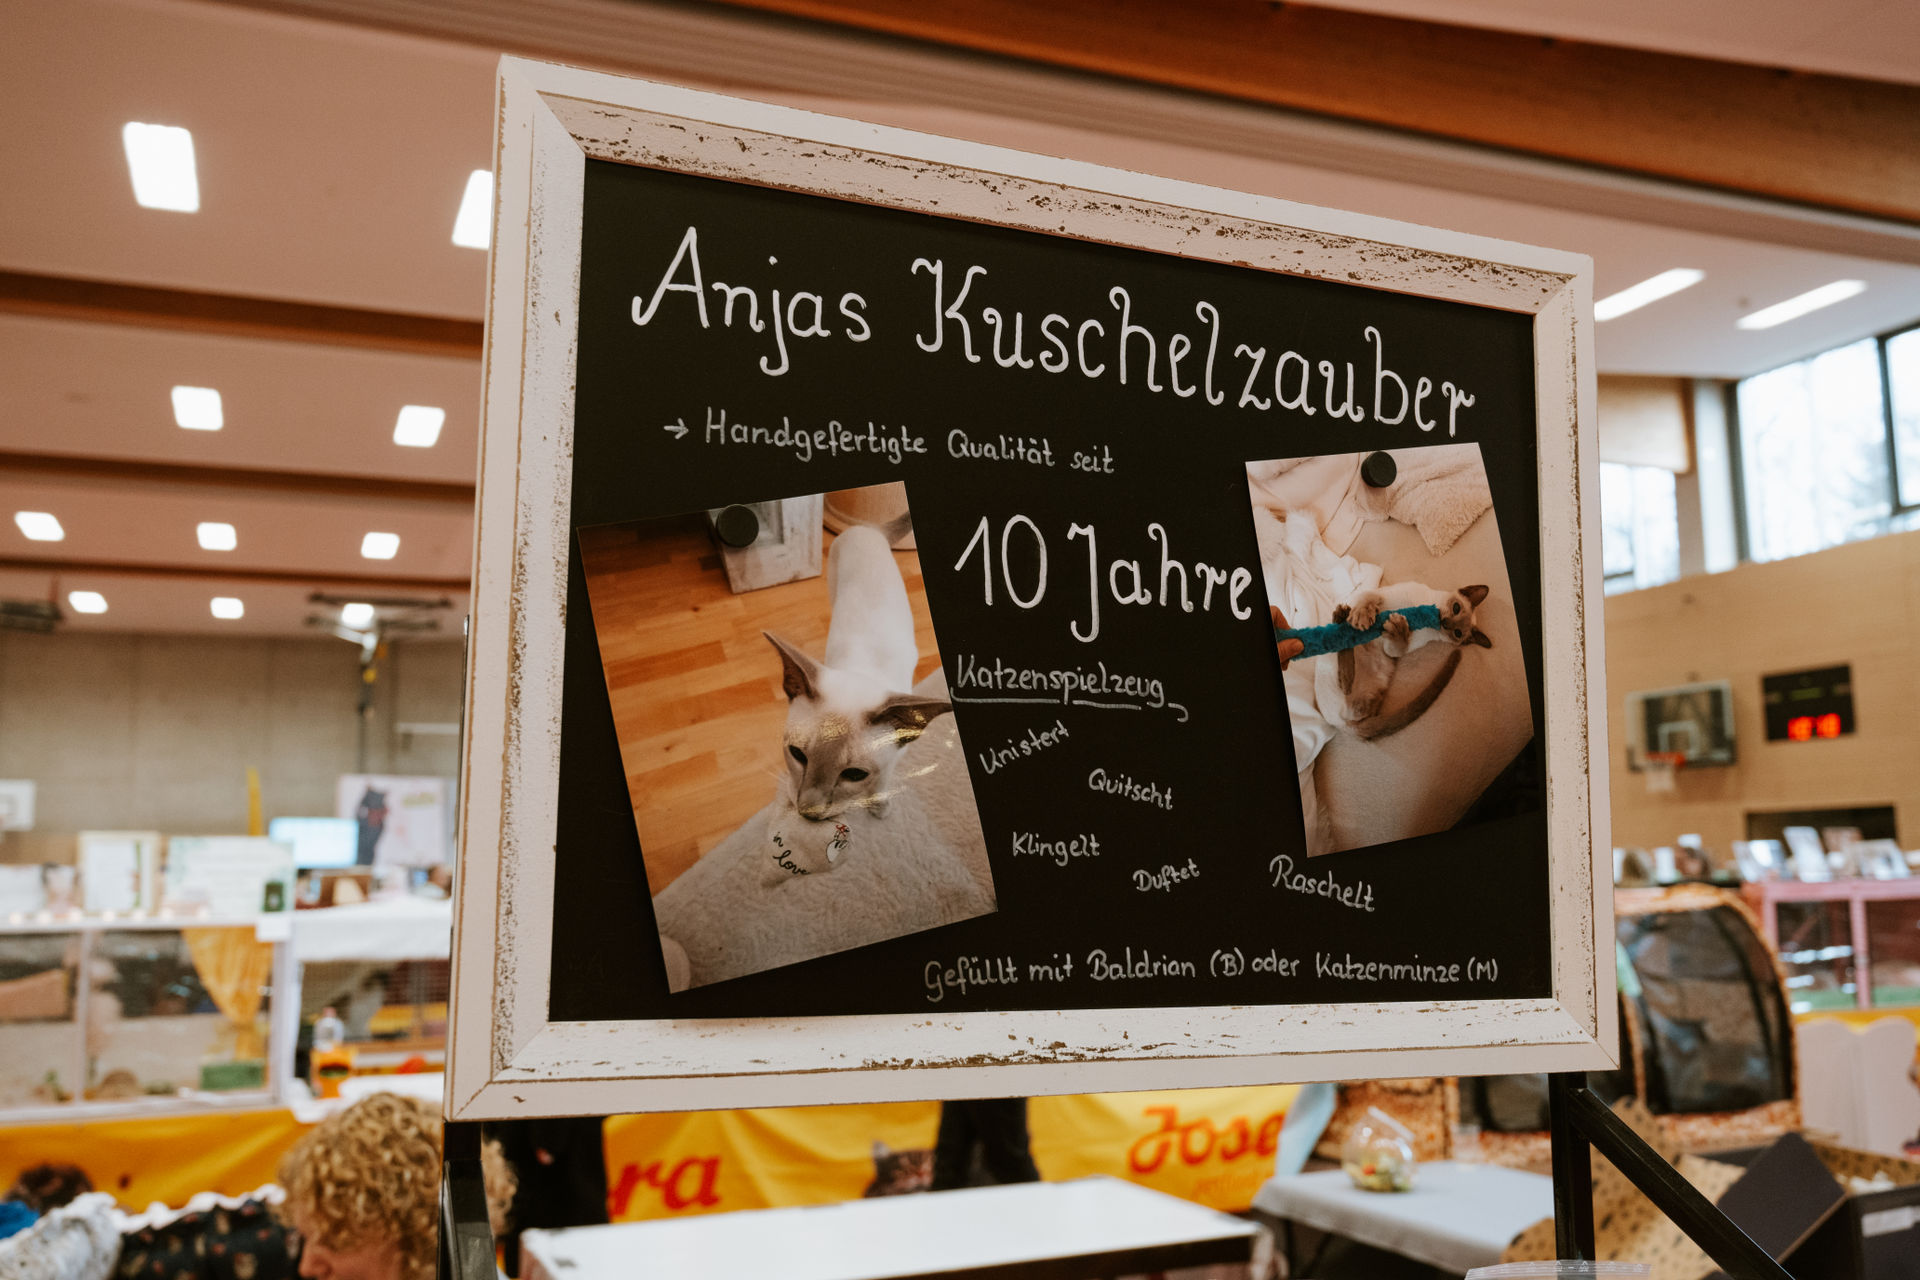 Anjas Kuschelzauber
→ Handgefertigte Qualität seit
10 Jahre
Katzenspielzeug
Knistert
Quitscht
Klingelt
Duftet
Raschelt
Gefüllt mit Baldrian (B) oder Katzenminze (M)
in
love
ra
Jose